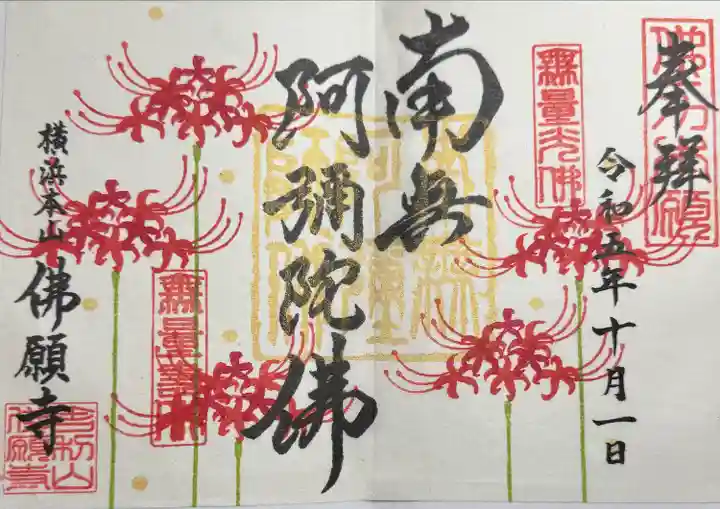 奉拜
令和五年十月一日
無量光佛
南無
阿彌陀佛
無量壽佛
横浜本山
佛願寺